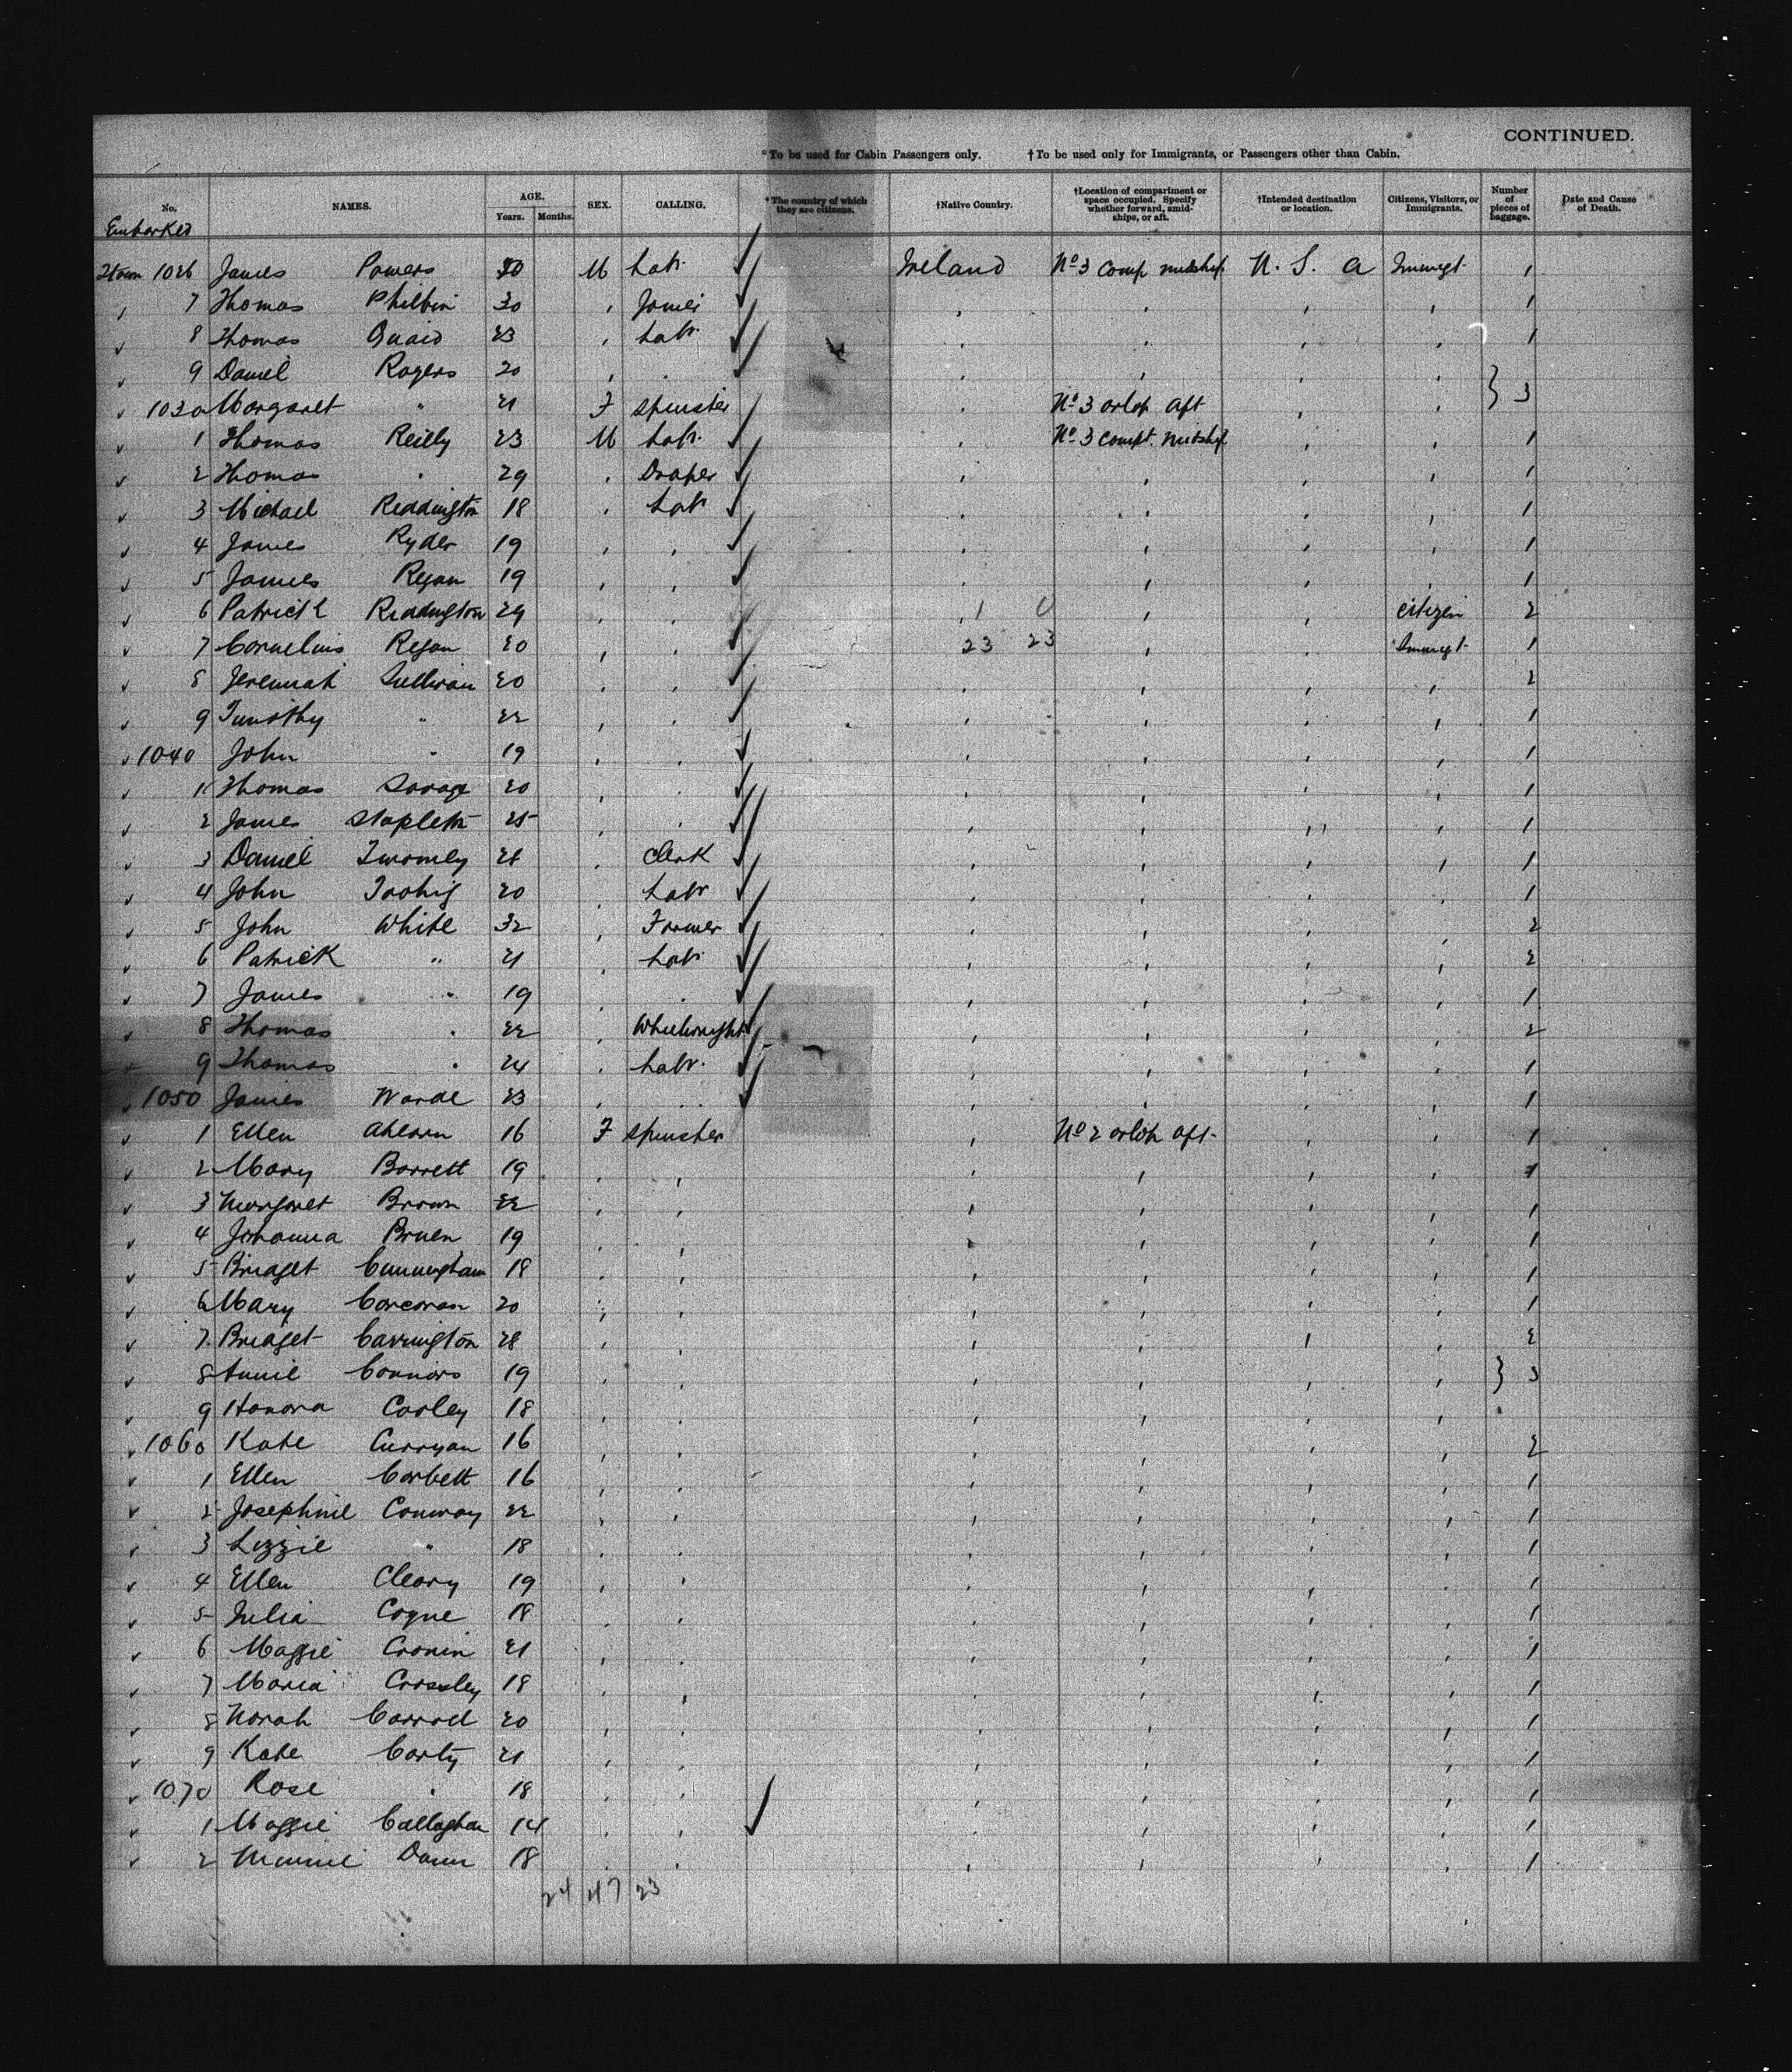 CONTINUED.
*To be used for Cabin Passengers only. †To be used only for Immigrants, or Passengers other than Cabin.
No. NAMES. AGE. Years. Months. SEX. CALLING. *The country of which they are citizens. †Native Country. †Location of compartment or space occupied. Specify whether forward, amidships, or aft. †Intended destination or location. Citizens, Visitors, or Immigrants. Number of pieces of baggage. Date and Cause of Death.
Embarked
1026 James Powers M Labr. Ireland No 3 comp midship U. S. a Immigt 1
7 Thomas Philbin 30 1
8 Thomas Quaid 23 Labr. 1
9 Daniel Rogers 20 } 3
1030 Margaret " 21 F Spinster No 3 orlop aft
1 Thomas Reilly 23 M Labr. No 3 compt. midship 1
2 Thomas " 29 Draper 1
3 Michael Reddington 18 Labr 1
4 James Ryder 19 1
5 James Regan 19 1
6 Patrick Reddington 29 1 0 Citizen 2
7 Cornelius Regan 20 23 23 Immigt 1
8 Jeremiah Sullivan 20 2
9 Timothy " 22 1
1040 John " 19 1
1 Thomas Savage 20 1
2 James Stapleton 25 1
3 Daniel Twomey 28 Clerk 1
4 John Toohig 20 Labr 1
5 John White 32 Farmer 2
6 Patrick " 21 Labr. 2
7 James " 19 1
8 Thomas " 22 Wheelwright 2
9 Thomas " 24 Labr. 1
1050 James Warde 23 1
1 Ellen Ahearn 16 F Spinster No 2 orlop aft 1
2 Mary Barrett 19 1
3 Margaret Brown 22 1
4 Johanna Bruen 19 1
5 Bridget Cunningham 18 1
6 Mary Corcoran 20 1
7 Bridget Carrington 28 2
8 Annie Connors 19 } 3
9 Honora Cooley 18
1060 Kate Curryan 16 2
1 Ellen Corbett 16 1
2 Josephine Conway 22 1
3 Lizzie " 18 1
4 Ellen Cleary 19 1
5 Julia Coyne 18 1
6 Maggie Cronin 21 1
7 Maria Crossley 18 1
8 Norah Carroll 20 1
9 Kate Carty 21 1
1070 Rose " 18 1
1 Maggie Callaghan 14 1
2 Minnie Dunn 18 1
24 47 23